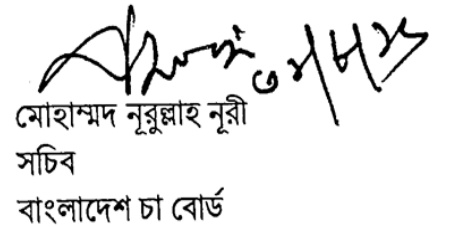 মোহাম্মদ নূরুল্লাহ নূরী
সচিব
বাংলাদেশ চা বোর্ড